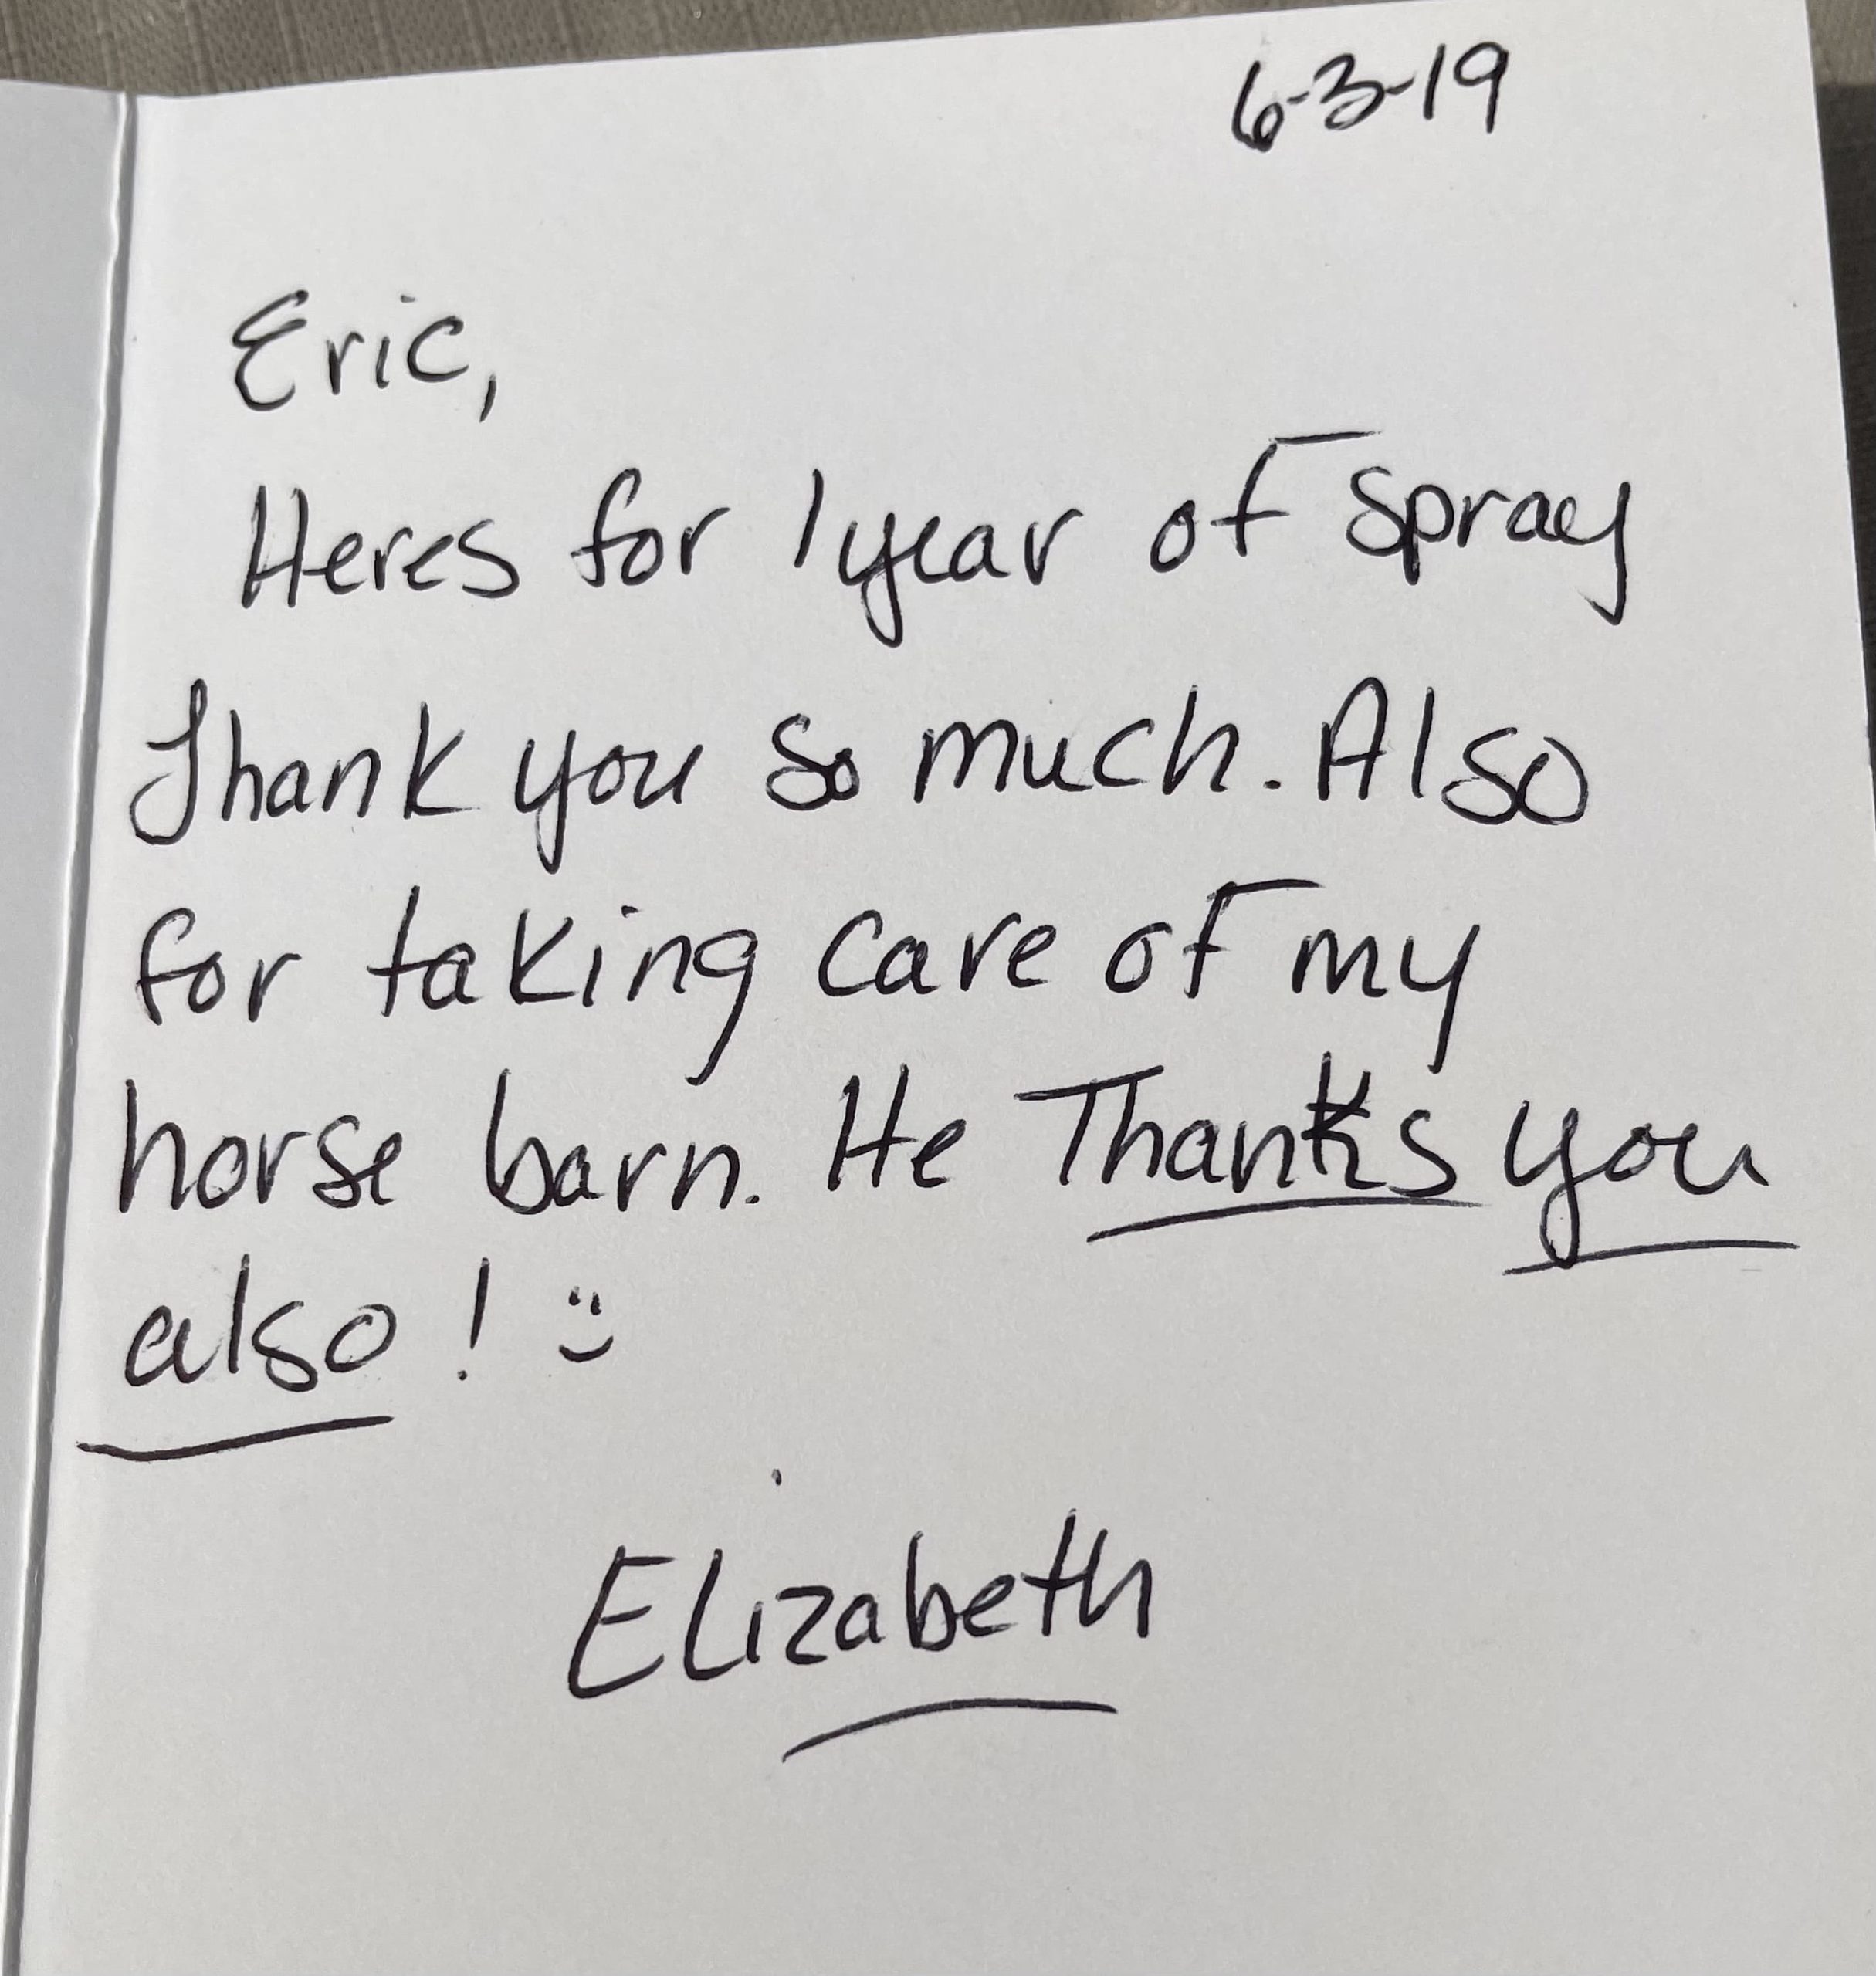 6-3-19
Eric,
Heres for 1 year of spray
Thank you so much. Also
for taking care of my
horse barn. He Thanks you
also! :)
Elizabeth